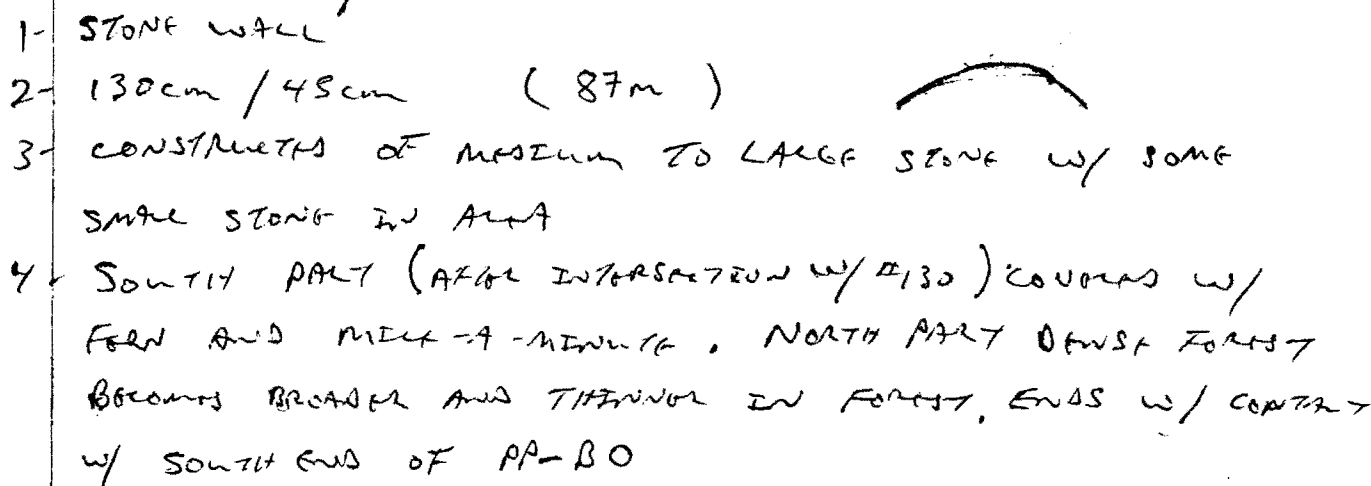 1- STONE WALL
2- 130cm / 45cm (87m)
3- CONSTRUCTED OF MEDIUM TO LARGE STONE W/ SOME
SMALL STONE IN AREA
4- SOUTH PART (AFTER INTERSECTION W/ #130) COVERED W/
FERN AND MILE-A-MINUTE. NORTH PART DENSE FOREST
BECOMES BROADER AND THINNER IN FOREST. ENDS W/ CONTACT
W/ SOUTH END OF PP-BO